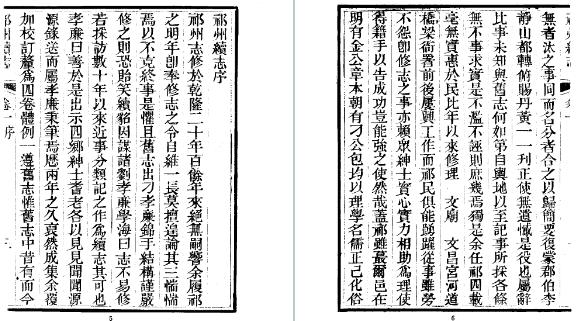 祁州續志序
祁州志修於乾隆二十年百餘年來絕無嗣響余履祁
之明年卽奉修志之令自維一長莫擅遑論其三惴惴
焉以不克終事是懼且舊志出刁孝廉錦手結構謹嚴
修之則恐貽笑續貂因謀諸劉孝廉學海曰志不易修
若採訪數十年以來近事分類記之作爲續志其可也
孝廉曰善於是出示四鄉紳士耆老各以見見聞聞源
源錄送而屬孝廉秉筆焉歷兩年之久裒然成集余復
加校訂釐爲四卷體例一遵舊志惟舊志中昔有而今
祁州續志
卷一序
5
無者汰之事同而名分者合之以歸簡要復蒙郡伯李
靜山都轉俯賜丹黃一一刊正使無遺憾是役也屬辭
比事未知與舊志何如第自輿地以至記事所採各條
無不事求實是不濫不誣則庶幾焉獨是余任祁四載
毫無實惠於民比年以來修理 文廟 文昌宮河道
橋梁衙署前後屢興工作而祁民俱能踴躍從事雖勞
不怨卽修志之事亦賴衆紳士實心實力相助爲理使
得藉手以告成功豈能强之使然哉蓋祁雖蕞爾邑在
明有金公章本朝有刁公包均以理學名儒正己化俗
6